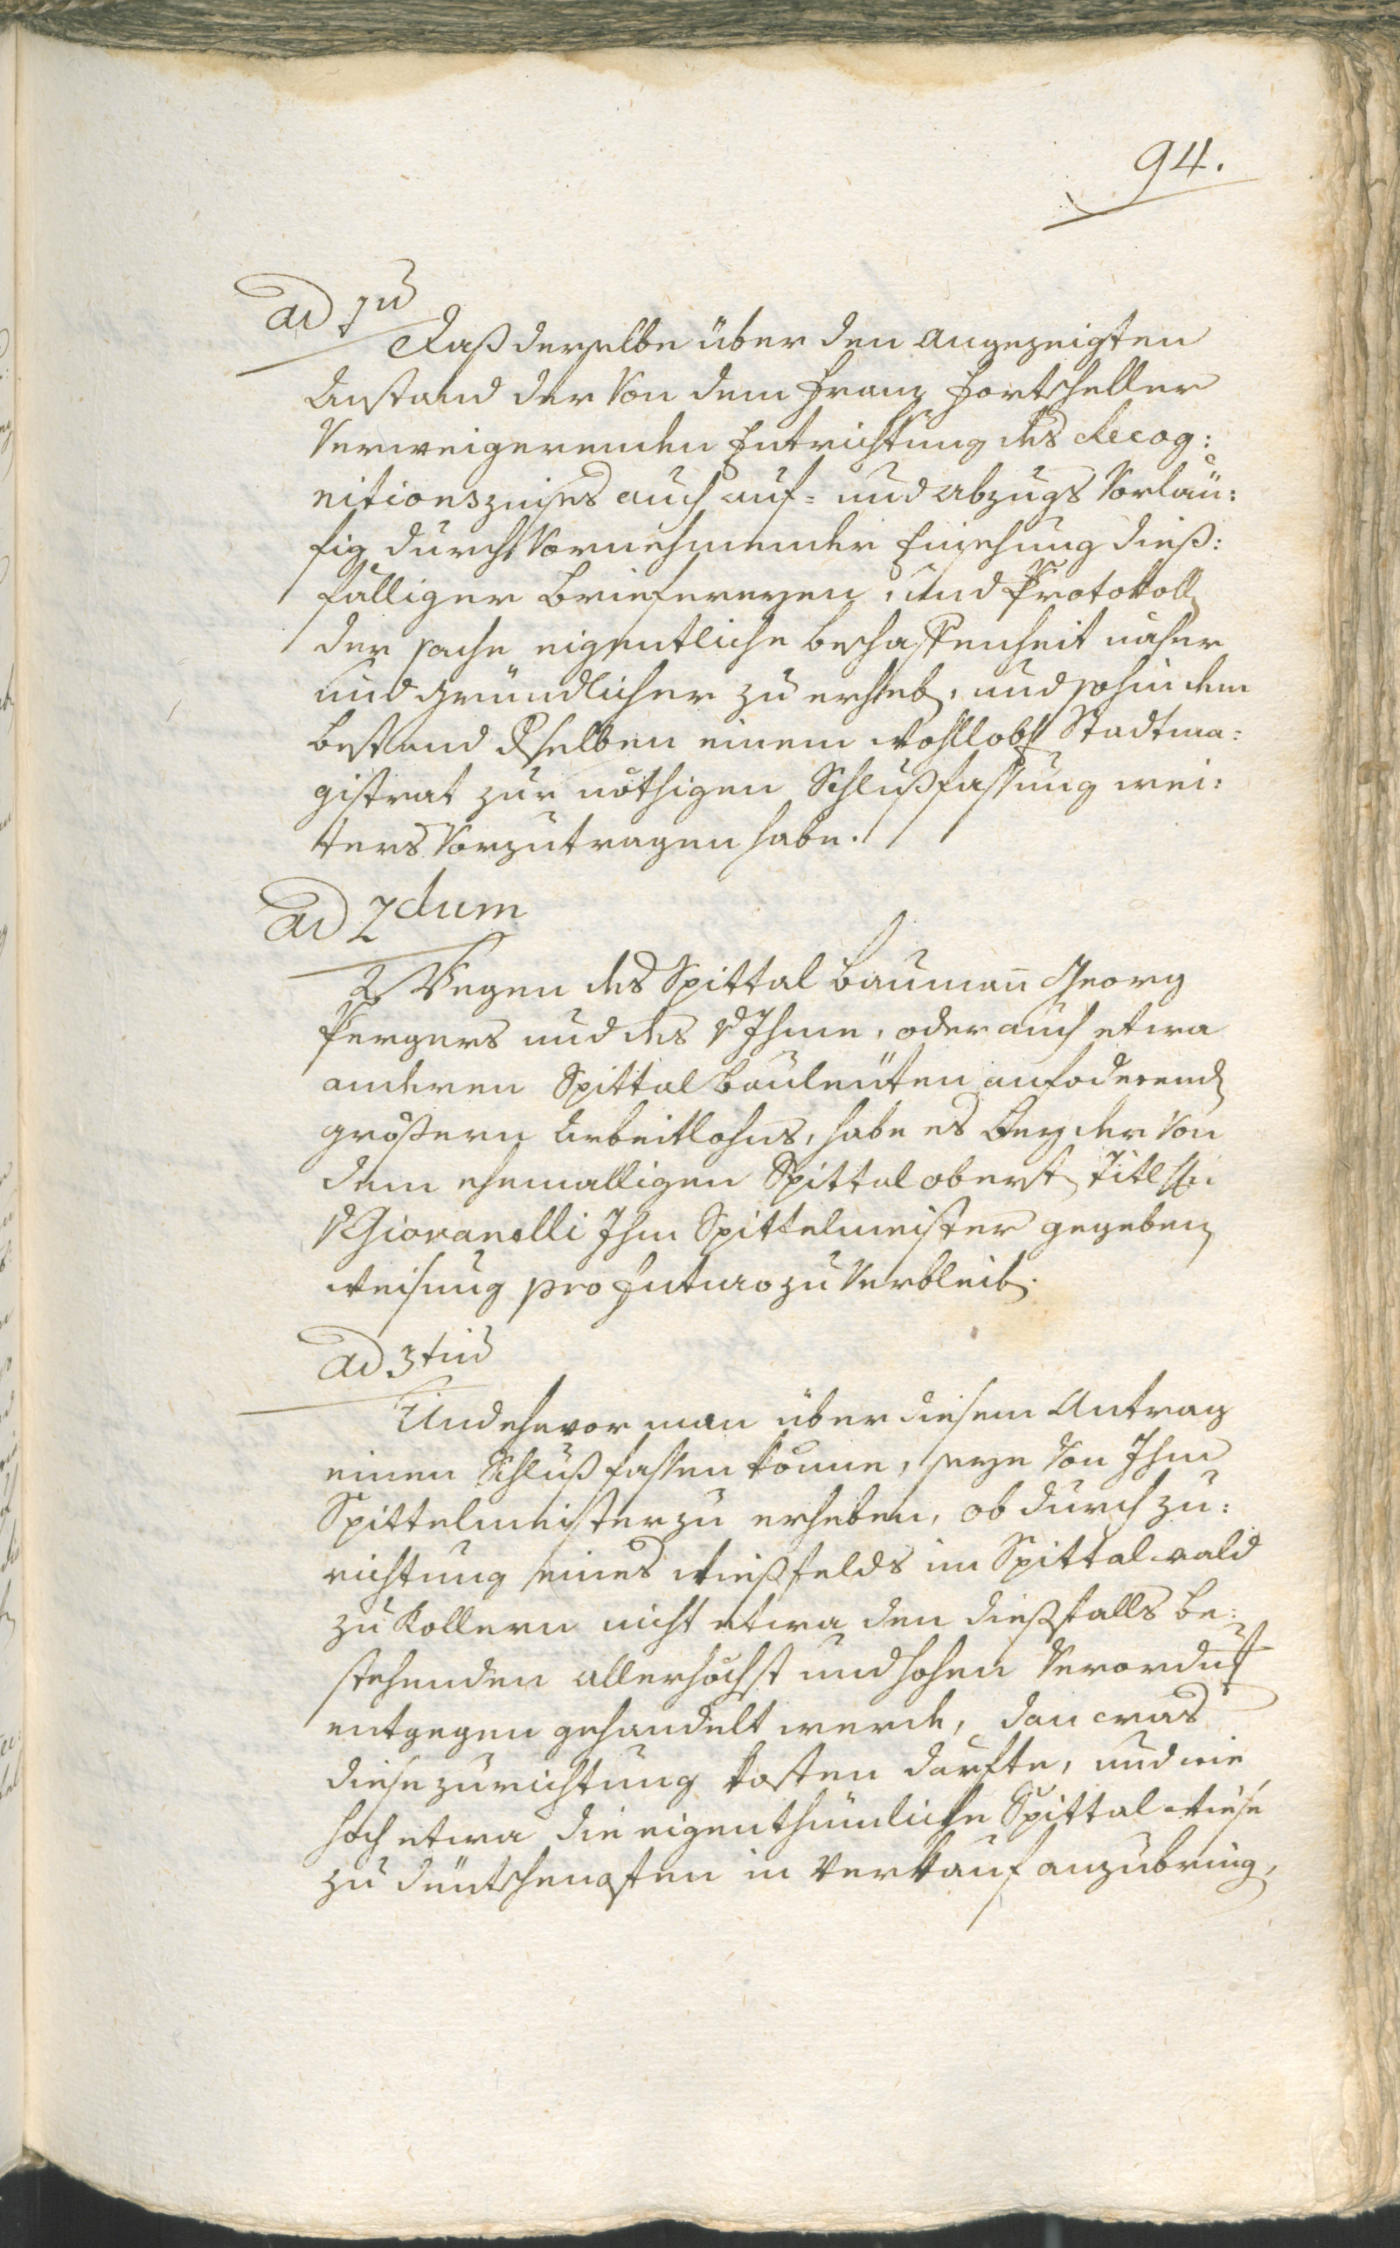 94.
ad 1um
Daß derselbe über den angezeigten
Anstand der von dem Franz Hortscheller
verweigerenden Entrichtung des Recog:
nitionszinses auch auf- und abzugs vorläu:
fig durch vornehmender Einsehung dieß:
fälliger Briefereyen, und Protokoll
der sache eigentliche beschaffenheit näher
und gründlicher zu erheb, und sohin dem
bestand deselben einem wohllobl Stadtma:
gistrat zur nöthigen Schlußfassung wei:
ters vorzutragen habe.
ad 2dum
Wegen des Spittal baumann Georg
Pergers und des Ihme, oder auch etwa
anderen Spittal bauleüten anfoderend
größern Arbeitlohns, habe es bey der von
dem ehemalligen Spittal oberst Titl Hn
v Giovanelli Ihm Spittelmeister gegeben
weisung pro futuro zu verbleib.
ad 3tiu
Und ehevor man über diesem Antrag
einen Schluß fassen könne, seye von Ihm
Spittelmeister zu erheben, ob durch zu:
richtung eines wießfelds im Spittal wald
zu Kollern nicht etwa den dießfalls be:
stehenden allerhöchst und hohen Verordn
entgegen gehandelt werde, dan was
diese zurichtung kosten därfte, und wie
hoch etwa die eigenthümliche Spittal wiese
zu deütschenofen in verkauf anzubring,